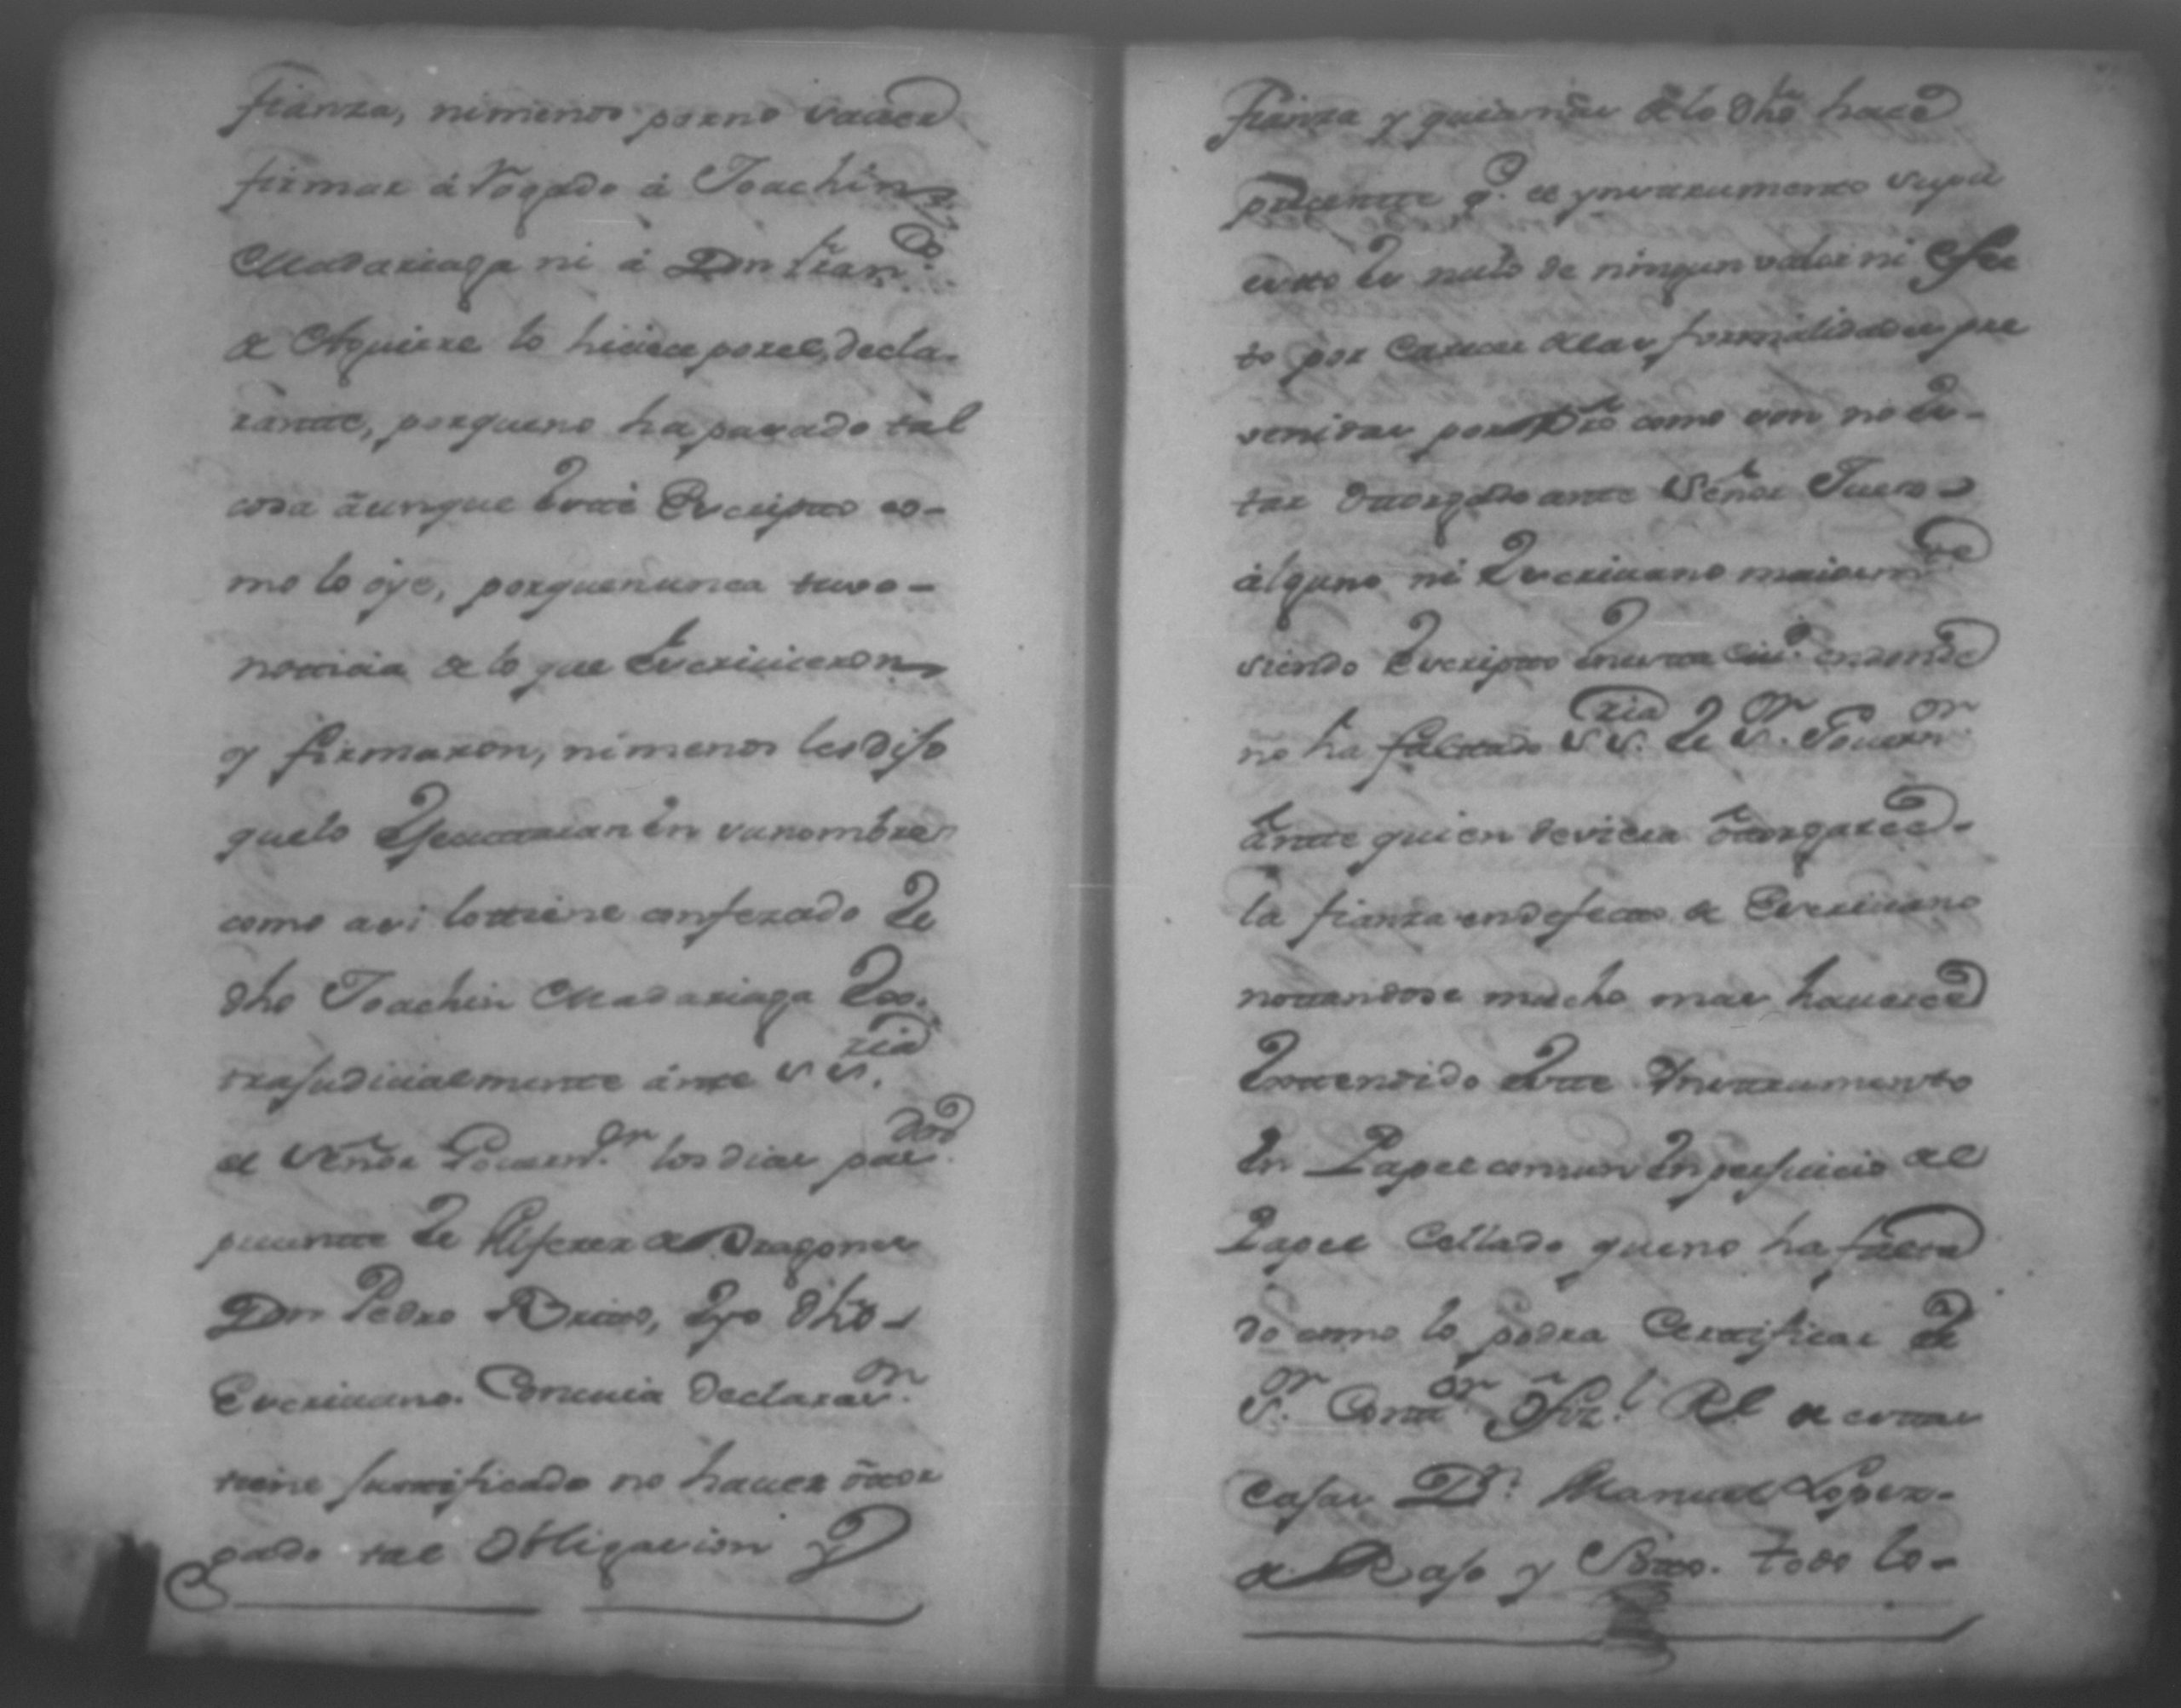 fianza, nimenos porno saver
firmar á Rogado á Joachin
Madariaga ni á Don Fran.co
de Aguirre lo hiciese porel, decla-
rante, porqueno ha pasado tal
cosa aunque Este Escripto co-
mo lo oye, porquenunca tuvo-
notticia de lo que Escriuieron
y firmaron, nimenos les dijo
quelo Ejecutaran En sunombre
como asi lottiene confesado El
dho Joachin Madariaga Ex-
trajudicialmente ánte S S.ria
el Señor Gouern.or los dias pas.dos
presente El Alferez de Dragones
Don Pedro Brittos, Eyo dho-
Escriuano. Concuia declaras.on
tiene justtificado no hauer ottor
gado tal Obligasion y
Fianza y que á más de lo dho hace
presente q.e el ynstrumento supu
esto Es nulo de ningun valor ni Efec
to por Careser delas formalidades pre
venidas por Dro como son no Es-
tar Otorgado ante Señor Juez-
alguno ni Escriuano maiorm.te
siendo Escripto Enesta Ciu.d endonde
no ha faltado S S.ria El S.or Gouern.or
ánte quien deviera ótorgarce-
la fianza endefecto de Escriuano
nottandose mucho mas hauerce
Exttendido Este Ynstrumento
En Papel comun En perjuicio del
Papel Cellado queno ha faltta
do como lo podra Certtificar El
S.or Cont.or Ofiz.l R.l de esttas
Cajas D.n Manuel Lopez-
de Raso y Sotto. todo lo-